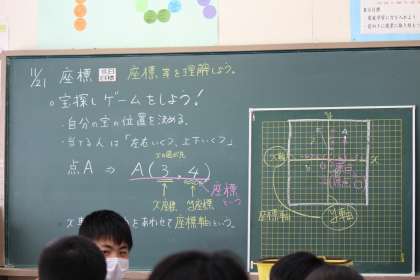 11/21 座標 座標を理解しよう。
◦宝探しゲームをしよう!
・自分の宝の位置を決める。
・当てる人は「左右いくつ、上下いくつ」
点A ⇒ A(3, 4)
座標
という
x座標 y座標
あわせて座標軸という。
A
x
x軸
原点O
座標軸
y軸